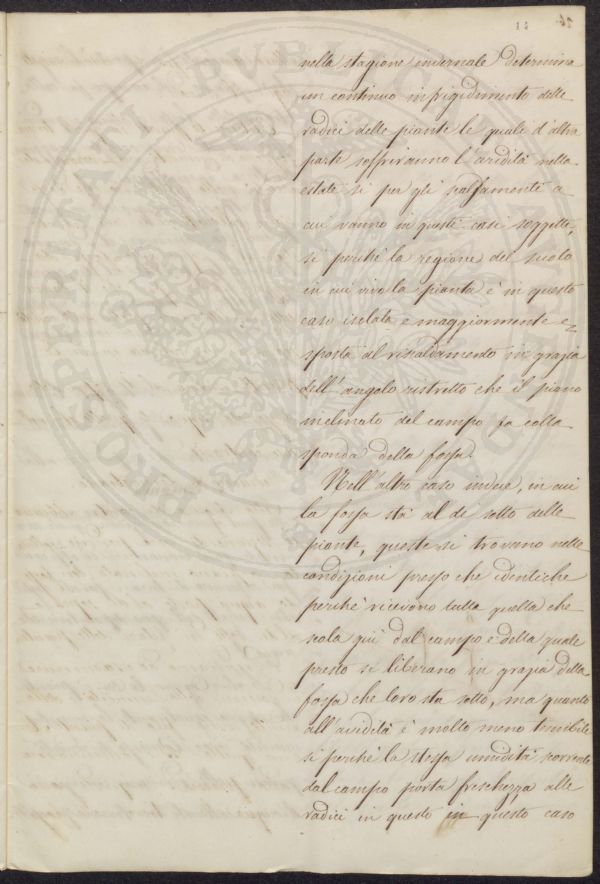 nella stagione invernale determina
un continuo infrigidimento delle
radici delle piante le quale d'altra
parte soffriranno l'aridità nella
estate si per gli scalzamenti a
cui vanno in questi casi soggette,
si perchè la regione del suolo
in cui vive la pianta è in questo
caso isolata e maggiormente e-
sposta al riscaldamento in grazia
dell'angolo ristretto che il piano
inclinato del campo fa colla
sponda della fossa.
Nell'altro caso invece, in cui
la fossa stà al di sotto delle
piante, queste si trovano nelle
condizioni presso che identiche
perchè ricevono tutta quella che
scola giù dal campo e della quale
presto si liberano in grazia della
fossa che loro sta sotto, ma quanto
all'aridità è molto meno temibile
si perchè la stessa umidità scorrente
dal campo porta freschezza alle
radici in questo in questo caso
PROSPERITATI PVBLICAE